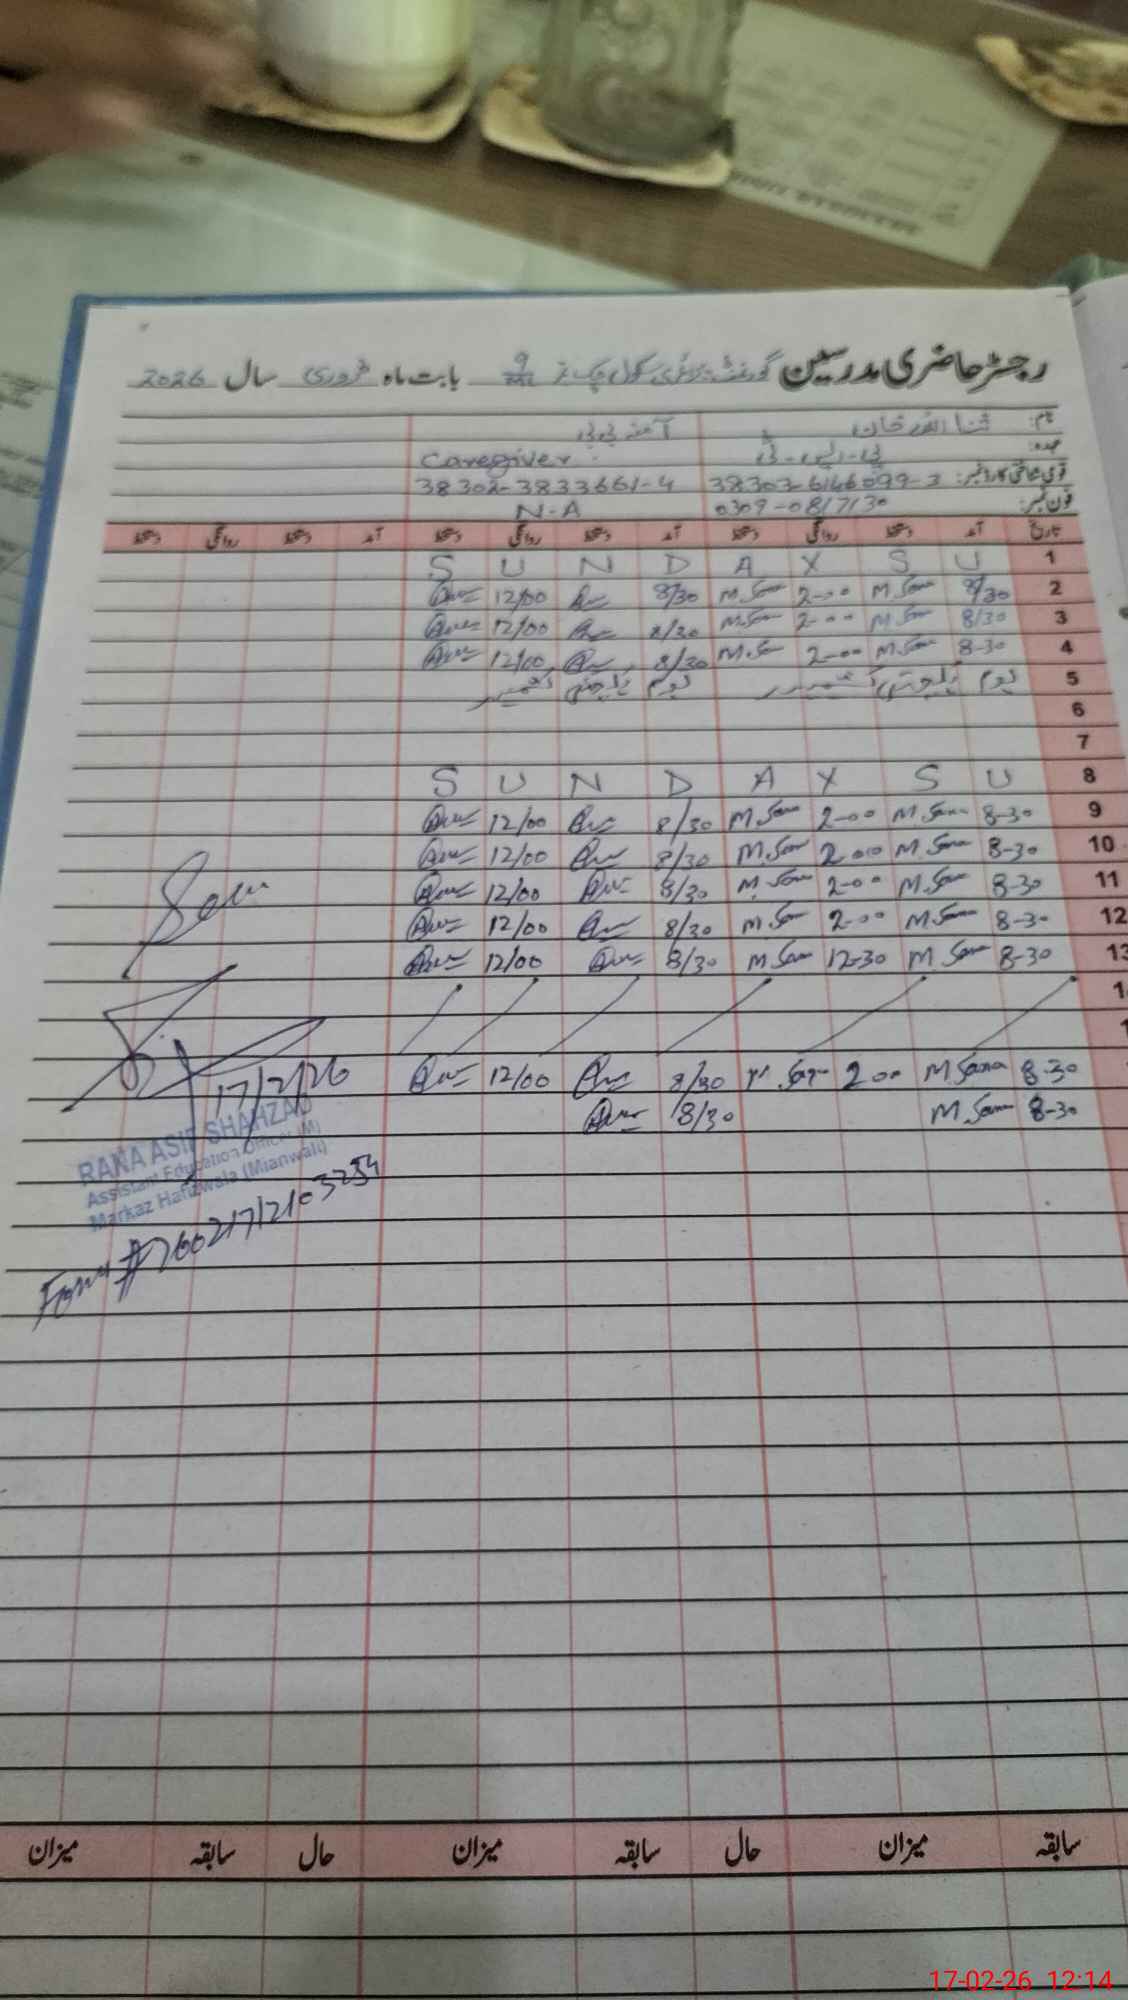 رجسٹر حاضری مدرسین گورنمنٹ پرائمری سکول چک نمبر 9 بابت ماہ فروری سال 2026
نام: ثناء اللہ خان آمنہ بی بی
عہدہ: پی-ایس-ٹی Caregiver
قومی شناختی کارڈ نمبر: 38303-6166099-3 38302-3833661-4
فون نمبر: 0309-0817130 N-A
تاریخ آمد دستخط روانگی دستخط آمد دستخط روانگی دستخط آمد دستخط روانگی دستخط
1 S U N D A Y S U
2 8/30 M.Sana 2-00 M.Sana 8/30 12/00
3 8/30 M.Sana 2-00 M.Sana 8/30 12/00
4 8-30 M.Sana 2-00 M.Sana 8/30 12/00
5 یوم یکجہتی کشمیر یوم یکجہتی کشمیر
6
7
8 S U N D A Y S U
9 8-30 M.Sana 2-00 M.Sana 8/30 12/00
10 8-30 M.Sana 2-00 M.Sana 8/30 12/00
11 8-30 M.Sana 2-00 M.Sana 8/30 12/00
12 8-30 M.Sana 2-00 M.Sana 8/30 12/00
13 8-30 M.Sana 12-30 M.Sana 8/30 12/00
8-30 M.Sana 2-00 8/30 12/00
8-30 M.Sana 8/30
17/2/26
RANA ASIF SHAHZAD
Assistant Education Officer (M)
Markaz Hafizwala (Mianwali)
سابقہ میزان حال سابقہ میزان حال سابقہ میزان
17-02-26 12:14